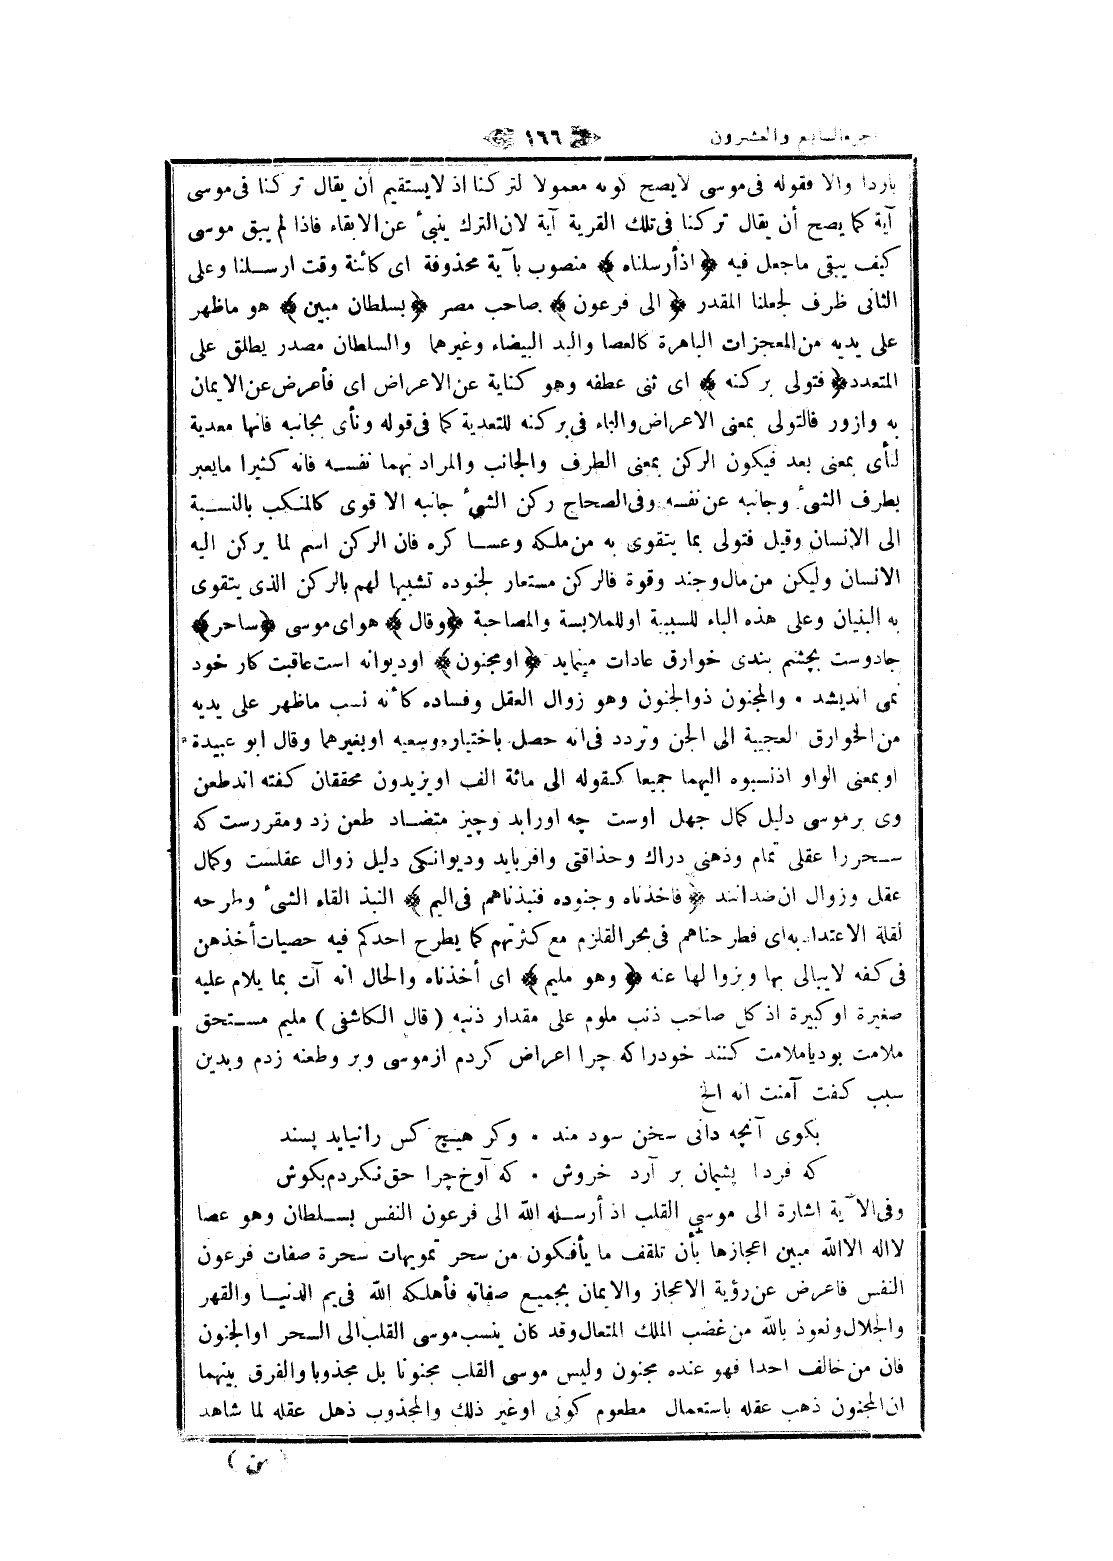 الجزء السابع والعشرون ١٦٦
باردا والا فقوله فى موسى لا يصح كونه معمولا لتركنا اذ لا يستقيم أن يقال تركنا فى موسى
آية كما يصح أن يقال تركنا فى تلك القرية آية لان الترك ينبىٔ عن الابقاء فاذا لم يبق موسى
كيف يبقى ماجعل فيه ﴿ اذ أرسلناه ﴾ منصوب بآية محذوفة اى كائنة وقت ارسلنا وعلى
الثانى ظرف لجعلنا المقدر ﴿ الى فرعون ﴾ صاحب مصر ﴿ بسلطان مبين ﴾ هو ماظهر
على يديه من المعجزات الباهرة كالعصا واليد البيضاء وغيرهما والسلطان مصدر يطلق على
المتعدد ﴿ فتولى بركنه ﴾ اى ثنى عطفه وهو كناية عن الاعراض اى فأعرض عن الايمان
به وازور فالتولى بمعنى الاعراض والباء فى بركنه للتعدية كما فى قوله ونأى بجانبه فانها معدية
لنأى بمعنى بعد فيكون الركن بمعنى الطرف والجانب والمراد بهما نفسه فانه كثيرا مايعبر
بطرف الشىٔ وجانبه عن نفسه وفى الصحاح ركن الشىٔ جانبه الاقوى كالمنكب بالنسبة
الى الانسان وقيل فتولى بما يتقوى به من ملكه وعساكره فان الركن اسم لما يركن اليه
الانسان وليكن من مال وجند وقوة فالركن مستعار لجنوده تشبيها لهم بالركن الذى يتقوى
به البنيان وعلى هذه الباء للسببية او للملابسة والمصاحبة ﴿ وقال ﴾ هو اى موسى ﴿ ساحر ﴾
جادوست بچشم بندى خوارق عادات مينمايد ﴿ او مجنون ﴾ اوديوانه است عاقبت كار خود
نمى انديشد • والمجنون ذو الجنون وهو زوال العقل وفساده كأنه نسب ماظهر على يديه
من الخوارق العجيبة الى الجن وتردد فى انه حصل باختياره وسعيه او بغيرهما وقال ابو عبيدة
او بمعنى الواو اذ نسبوه اليهما جميعا كقوله الى مائة الف او يزيدون محققان كفته اند طعن
وى بر موسى دليل كمال جهل اوست چه اورا بدو چيز متضاد طعن زد ومقررست كه
سحر را عقلى تمام وذهنى دراك وحذاقتى وافر بايد وديوانكى دليل زوال عقلست وكمال
عقل وزوال ان ضدانند ﴿ فاخذناه وجنوده فنبذناهم فى اليم ﴾ النبذ القاء الشىٔ وطرحه
لقلة الاعتداد به اى فطرحناهم فى بحر القلزم مع كثرتهم كما يطرح احدكم فيه حصيات أخذهن
فى كفه لايبالى بها وبزوالها عنه ﴿ وهو مليم ﴾ اى أخذناه والحال انه آت بما يلام عليه
صغيرة اوكبيرة اذ كل صاحب ذنب ملوم على مقدار ذنبه ( قال الكاشفى ) مليم مستحق
ملامت بود يا ملامت كنند خودرا كه چرا اعراض كردم از موسى وبر وطعنه زدم وبدين
سبب كفت آمنت انه الخ
بكوى آنچه دانى سخن سود مند • وكر هيچ كس را نيايد پسند
كه فردا پشيمان بر آرد خروش • كه آوخ چرا حق نكردم بكوش
وفى الآية اشارة الى موسى القلب اذ أرسله الله الى فرعون النفس بسلطان وهو عصا
لااله الاالله مبين اعجازها بأن تلقف ما يأفكون من سحر تمويهات سحرة صفات فرعون
النفس فاعرض عن رؤية الاعجاز والايمان بجميع صفاته فأهلكه الله فى يم الدنيا والقهر
والجلال ونعوذ بالله من غضب الملك المتعال وقد كان ينسب موسى القلب الى السحر او الجنون
فان من خالف احدا فهو عنده مجنون وليس موسى القلب مجنونا بل مجذوبا والفرق بينهما
ان المجنون ذهب عقله باستعمال مطعوم كونى او غير ذلك والمجذوب ذهل عقله لما شاهد